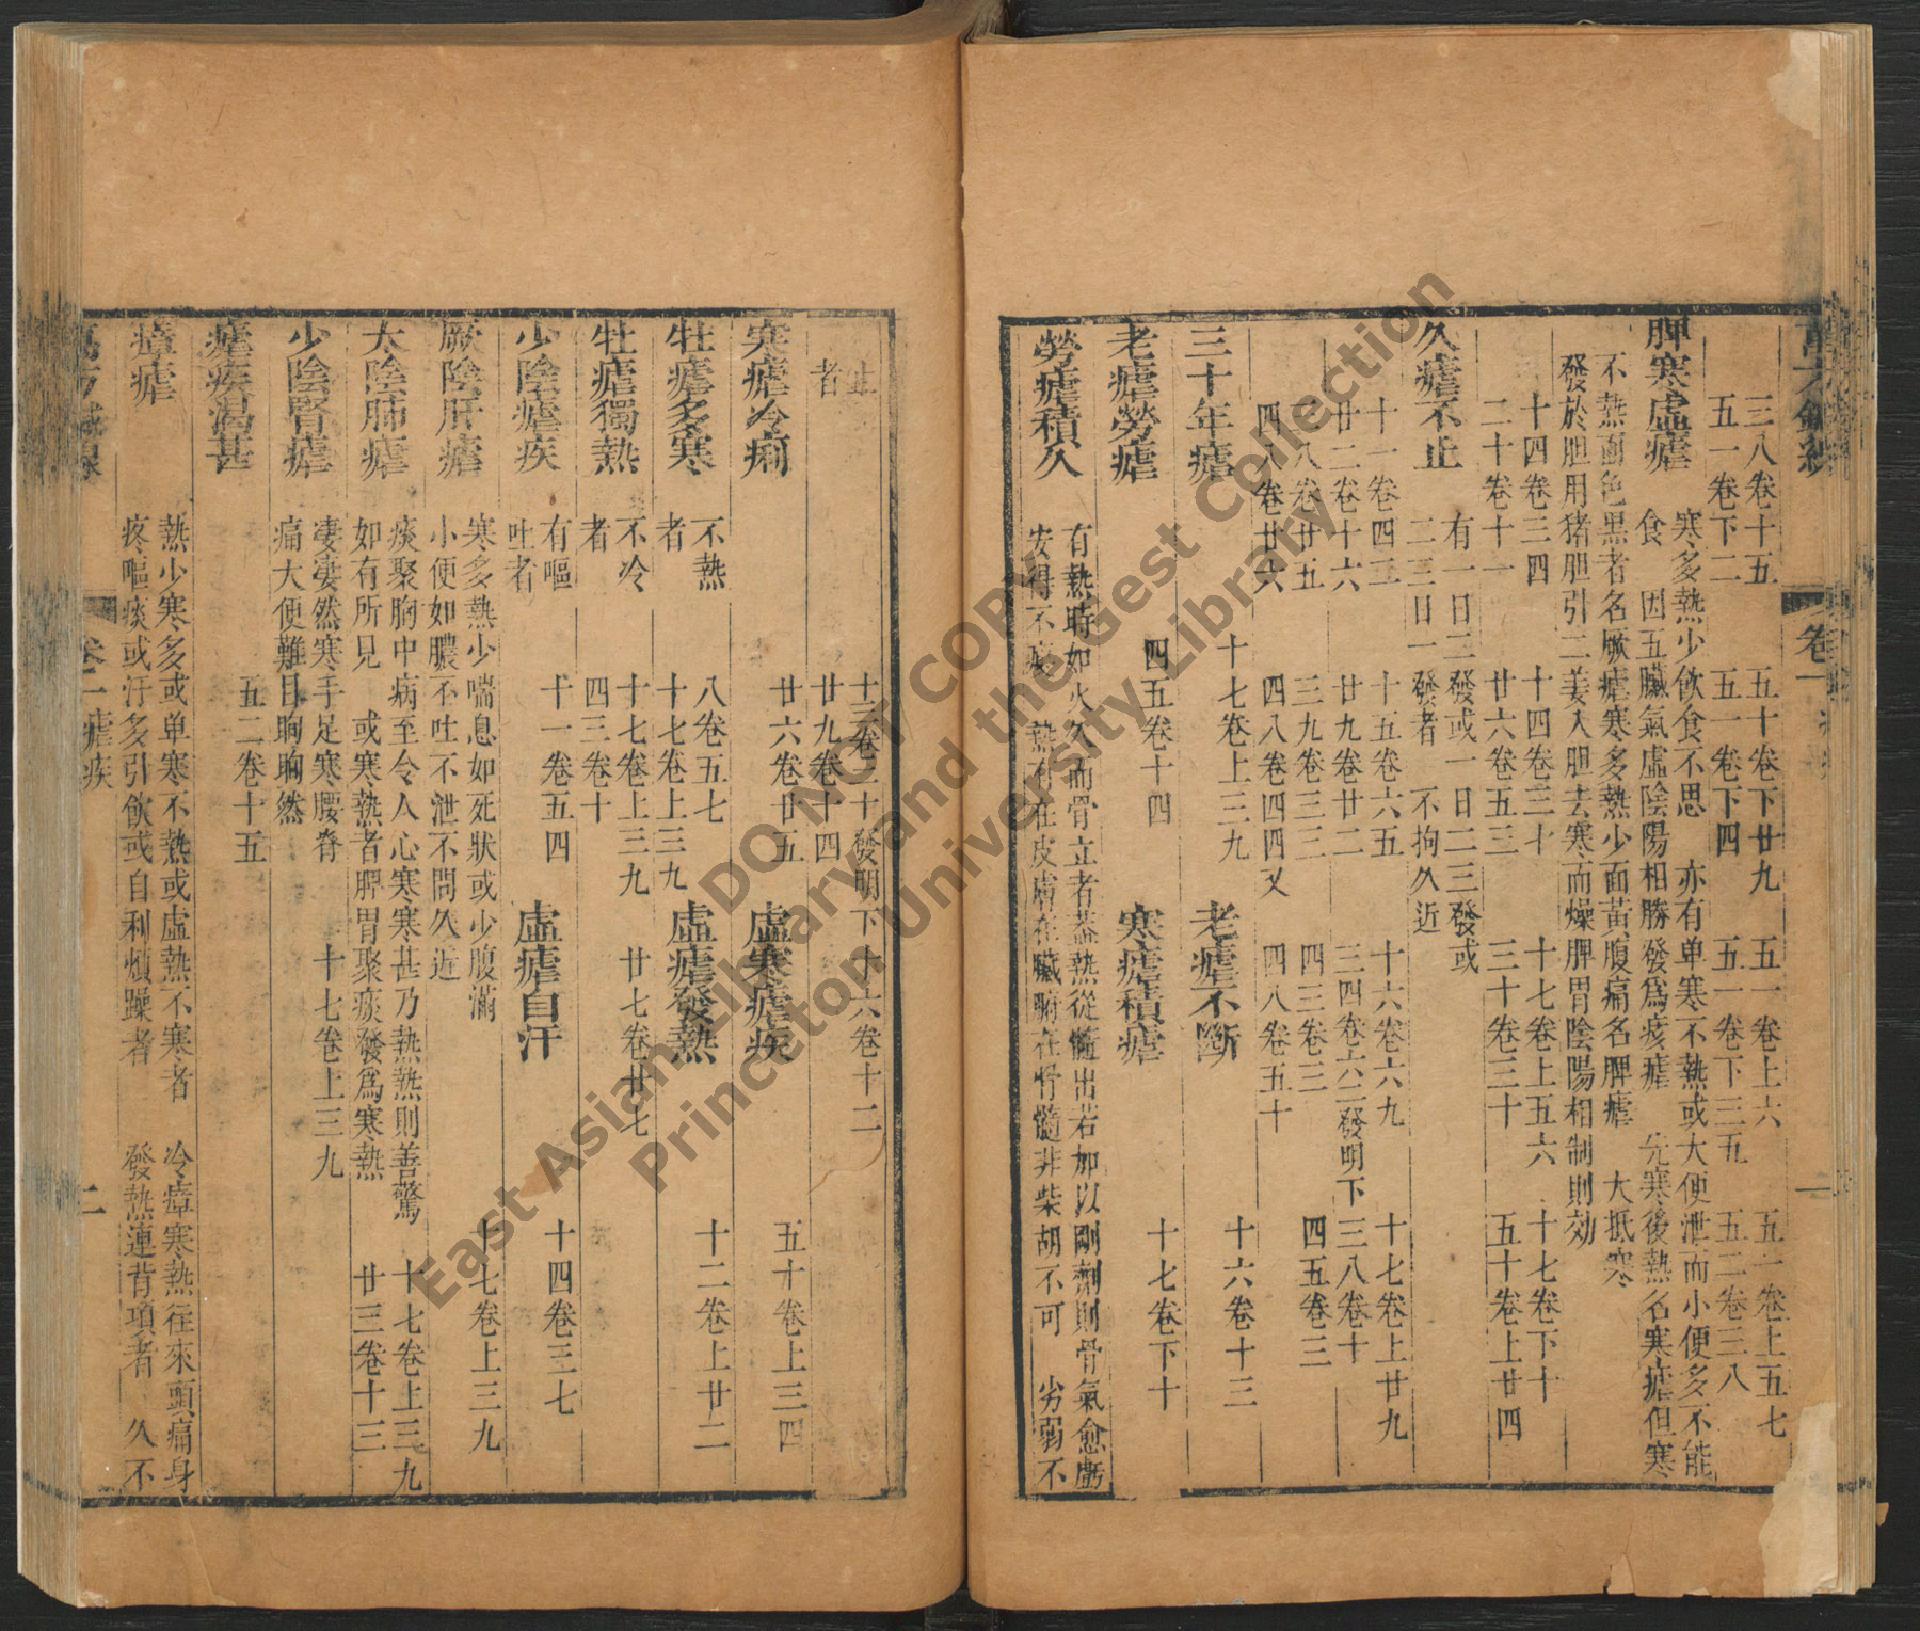 三八卷十五　五十卷下廿九　五一卷上六　五一卷上五七
五一卷下二　五一卷下四　五一卷下三五　五二卷三八
脾寒虛瘧　寒多熱少飲食不思　亦有单寒不熱或大便泄而小便多不能
食　因五臟氣虛陰陽相勝發爲痎瘧　先寒後熱名寒瘧但寒
不熱面色黑者名厥瘧寒多熱少面黃腹痛名脾瘧　大抵寒
發於胆用猪胆引二姜入胆去寒而燥脾胃陰陽相制則効
十四卷三四　十四卷三十　十七卷上五六　十七卷下十
二十卷十一　廿六卷五三　三十卷三十　五十卷上廿四
久瘧不止　有一日二發或一日二三發或
二三日一發者　不拘久近
十一卷四二　十五卷六五　十六卷六九　十七卷上廿九
廿二卷十六　廿九卷廿二　三四卷六二發明下　三八卷十
三八卷廿五　三九卷三三　四三卷三　四五卷三
四八卷廿六　四八卷四四又　四八卷五十
三十年瘧　十七卷上三九　老瘧不斷　十六卷十三
老瘧勞瘧　四五卷十四　寒瘧積瘧　十七卷下十
勞瘧積久　有熱時如火久而骨立者葢熱從髓出若加以剛劑則骨氣愈虧
安得不　熱有在皮膚在臟腑在骨髓非柴胡不可　劣弱不
卷一
一
止　十三卷三十發明下　十六卷十二
者　廿九卷十四
寒瘧冷痢　廿六卷廿五　虛寒瘧疾　五十卷上三四
牡瘧多寒　不熱　八卷五七
者　十七卷上三九　虛瘧發熱　十二卷上廿二
牡瘧獨熱　不冷　十七卷上三九　廿七卷廿七
者　四三卷十
少陰瘧疾　有嘔　十一卷五四　虛瘧自汗　十四卷三七
吐者
厥陰肝瘧　寒多熱少喘息如死狀或少腹滿　十七卷上三九
小便如膿不吐不泄不問久近
太陰肺瘧　痰聚胸中病至令人心寒寒甚乃熱熱則善驚　十七卷上三九
如有所見　或寒熱者脾胃聚痰發爲寒熱　廿三卷十三
少陰腎瘧　凄凄然寒手足寒腰脊　十七卷上三九
痛大便難目眴眴然
瘧疾渴甚　五二卷十五
瘴瘧　熱少寒多或单寒不熱或虛熱不寒者　冷瘴寒熱往來頭痛身
疼嘔痰或汗多引飲或自利煩躁者　發熱連背項者　久不
卷一　瘧疾
二
East Asian Library and the Gest Collection
DO NOT COPY
Princeton University Library